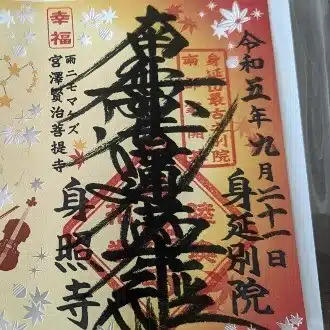 令和五年九月二十一日
身延別院
身延山最古別院
南無妙法蓮華経
幸福
雨ニモマケズ
宮澤賢治菩提寺
身照寺